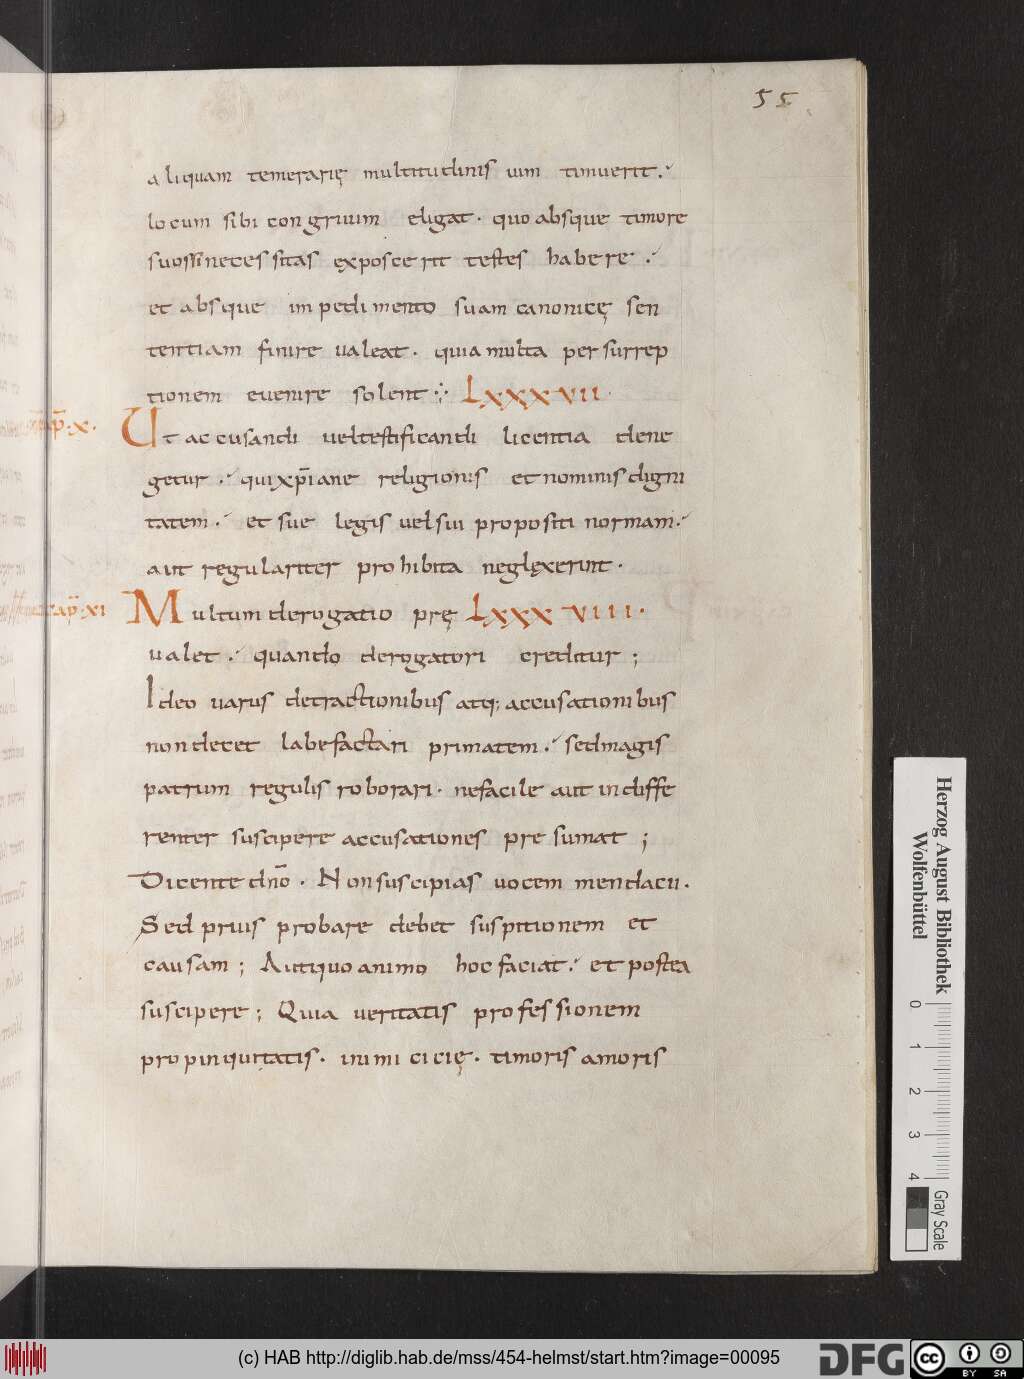 55
aliquam temerarię multitudinis uim timuerit.
locum sibi congruum eligat. quo absque timore
suos si necessitas exposcerit testes habere.
et absque impedimento suam canonicę sen
tentiam finire ualeat. quia multa per surrep
tionem euenire solent LXXXVII.
cap̄.x. Ut accusandi uel testificandi licentia dene
getur. qui xp̄iane religionis et nominis digni
tatem. et sue legis uel sui propositi normam.
aut regulariter prohibita neglexerunt.
cap̄.xi Multum derogatio prę LXXXVIII.
ualet. quando derogatori creditur;
Ideo uarus detractionibus atq; accusationibus
non decet labefactari primatem. sed magis
patrum regulis roborari. ne facile aut indiffe
renter suscipere accusationes presumat;
Dicente dn̄o. Non suscipias uocem mendacii.
Sed prius probare debet suspitionem et
causam; Aut quo animo hoc faciat. et postea
suscipere; Quia ueritatis professionem
propinquitatis. inimicicię. timoris amoris
Herzog August Bibliothek
Wolfenbüttel
0 1 2 3 4
Gray Scale
(c) HAB http://diglib.hab.de/mss/454-helmst/start.htm?image=00095
DFG
cc BY SA